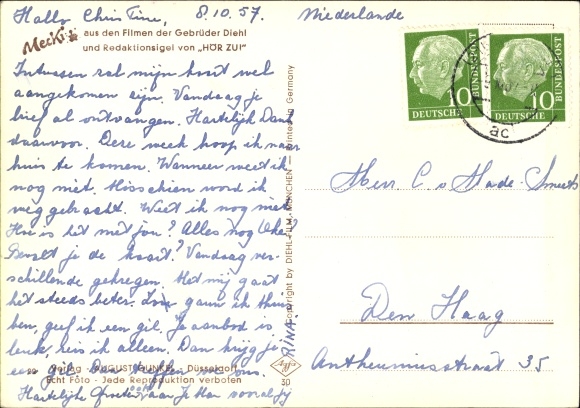 Hallo Christine, 8.10.57.
Mecki
aus den Filmen der Gebrüder Diehl
und Redaktionsigel von „HÖR ZU!"
Intussen zal mijn kaart wel
aangekomen zijn. Vandaag je
brief al ontvangen. Hartelijk Dank
daarvoor. Deze week hoop ik naar
huis te komen. Wanneer weet ik
nog niet. Misschien word ik
weg gebracht. Weet ik nog niet
Hoe is het met jou? Alles nog Oke?
Bevalt je de kaart? Vandaag ver-
schillende gekregen. Met mij gaat
het steeds beter. Zou gauw ik thuis
ben, geef ik een gil. Je aanbod is
leuk, reis ik alleen. Dan krijg je
een gil. dan treffen we ons.
Hartelijke Groeten, aan Je Ma vooral jij
RINA.
Verlag AUGUST GUNKEL · Düsseldorf
Echt Foto - Jede Reproduktion verboten
30
Agfa
Copyright by DIEHL-FILM, MÜNCHEN — Printed in Germany
Niederlande
10
DEUTSCHE
BUNDESPOST
10
DEUTSCHE
BUNDESPOST
ac
Herr C. v
Den Haag
Antheunisstraat 35